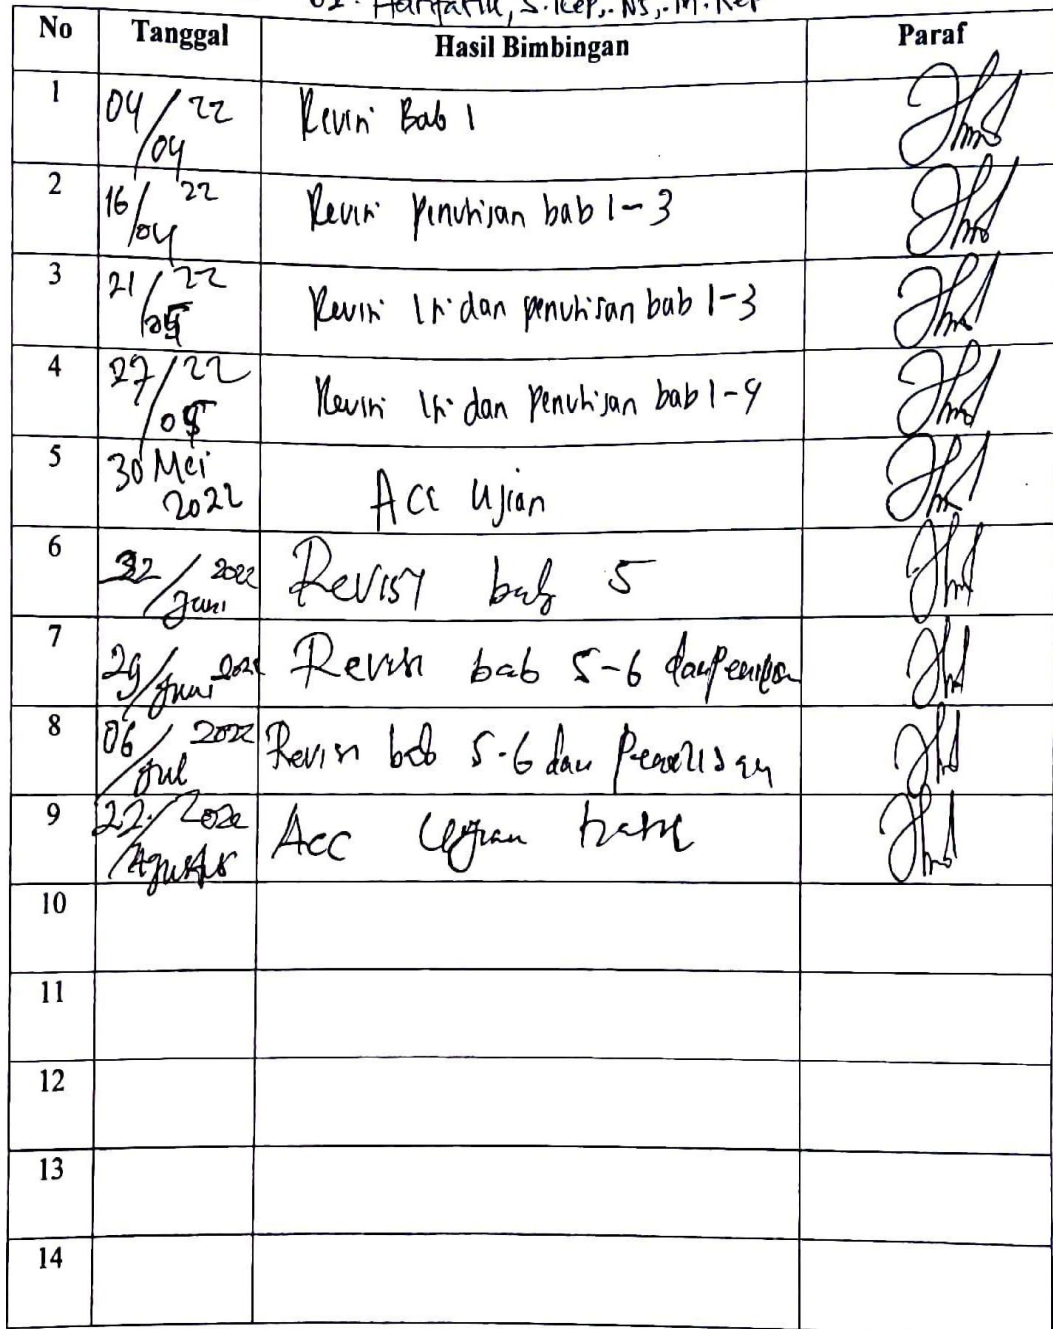 S.Kep,. NS,. M.Kep
No Tanggal Hasil Bimbingan Paraf
1 04/04 22 Revisi Bab 1
2 16/04 22 Revisi penulisan bab 1-3
3 21/05 22 Revisi Isi dan penulisan bab 1-3
4 27/05 22 Revisi Isi dan penulisan bab 1-4
5 30 Mei 2022 Acc Ujian
6 /Juni 2022 Revisi bab 5
7 29/Juni Revisi bab 5-6 dan
8 06/Jul 2022 Revisi bab 5-6 dan Penulisan
9 22/Agustus 2022 Acc Ujian hasil
10
11
12
13
14